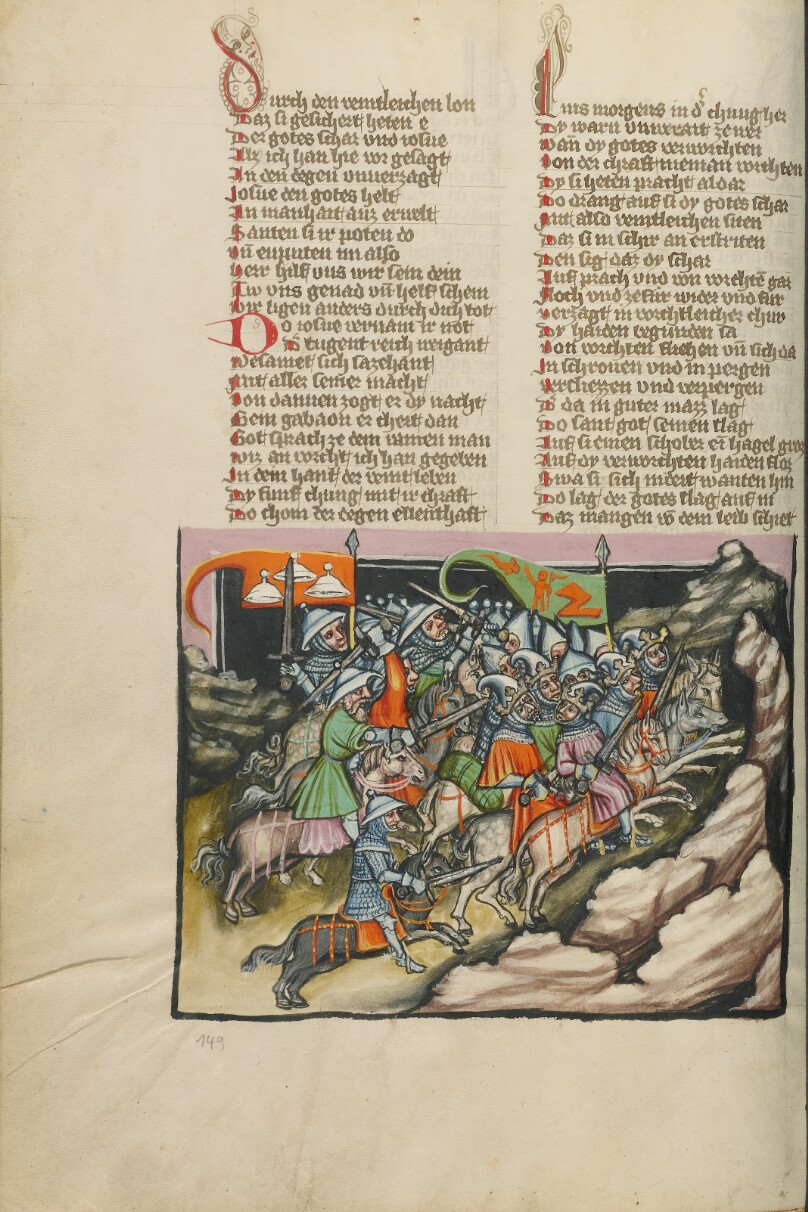 Durch den veintleichen lon
Daz si gesichert heten e
Der gotes schar vnd iosue
Alz ich han hie vor gesagt
An den degen vnuerzagt
Iosue den gotes helt
An manhait auz erwelt
Santen si ir poten do
vn̄ enputen im also
herr hilf vns wir sein dein
Tw vns genad vn̄ helf schein
wir ligen anders durch dich tot
Do iosue vernam ir not
Der tugent reich weigant
wesamet sich sazehant
Mit aller seiner macht
Von dannen zogt er dy nacht
Gein gabaon er chert dan
Got sprach ze dem rainen man
niz an vorcht ich han gegeben
In dein hant der veint leben
Dy fumf chung mit ir chraft
Do chom der degen ellenthaft
morgens in
Dy warn vnuerait ze wer
wan dy gotes verworchten
Von der chraft nieman vorchten
Dy si heten pracht al dar
Do drang auf si dy gotes schar
Mit also veintleichen siten
Daz si in schir an erstriten
Den sig daz dy schar
Auf prach vnd von vorchtē gar
Floch vnd
verzagt in vorchtleicher
Dy haiden begunden sa
von vorchten fliehen vn̄ sich da
In schrouen vnd in pergen
verchiezzen vnd verpergen
da in guter mazz lag
Do sant got seinen slag
Auf si einen schober
Auf dy verworchten haiden
Swa si sich indert wanten hin
Do lag der gotes slag auf in
Daz mangen vō dem leib schiet
149